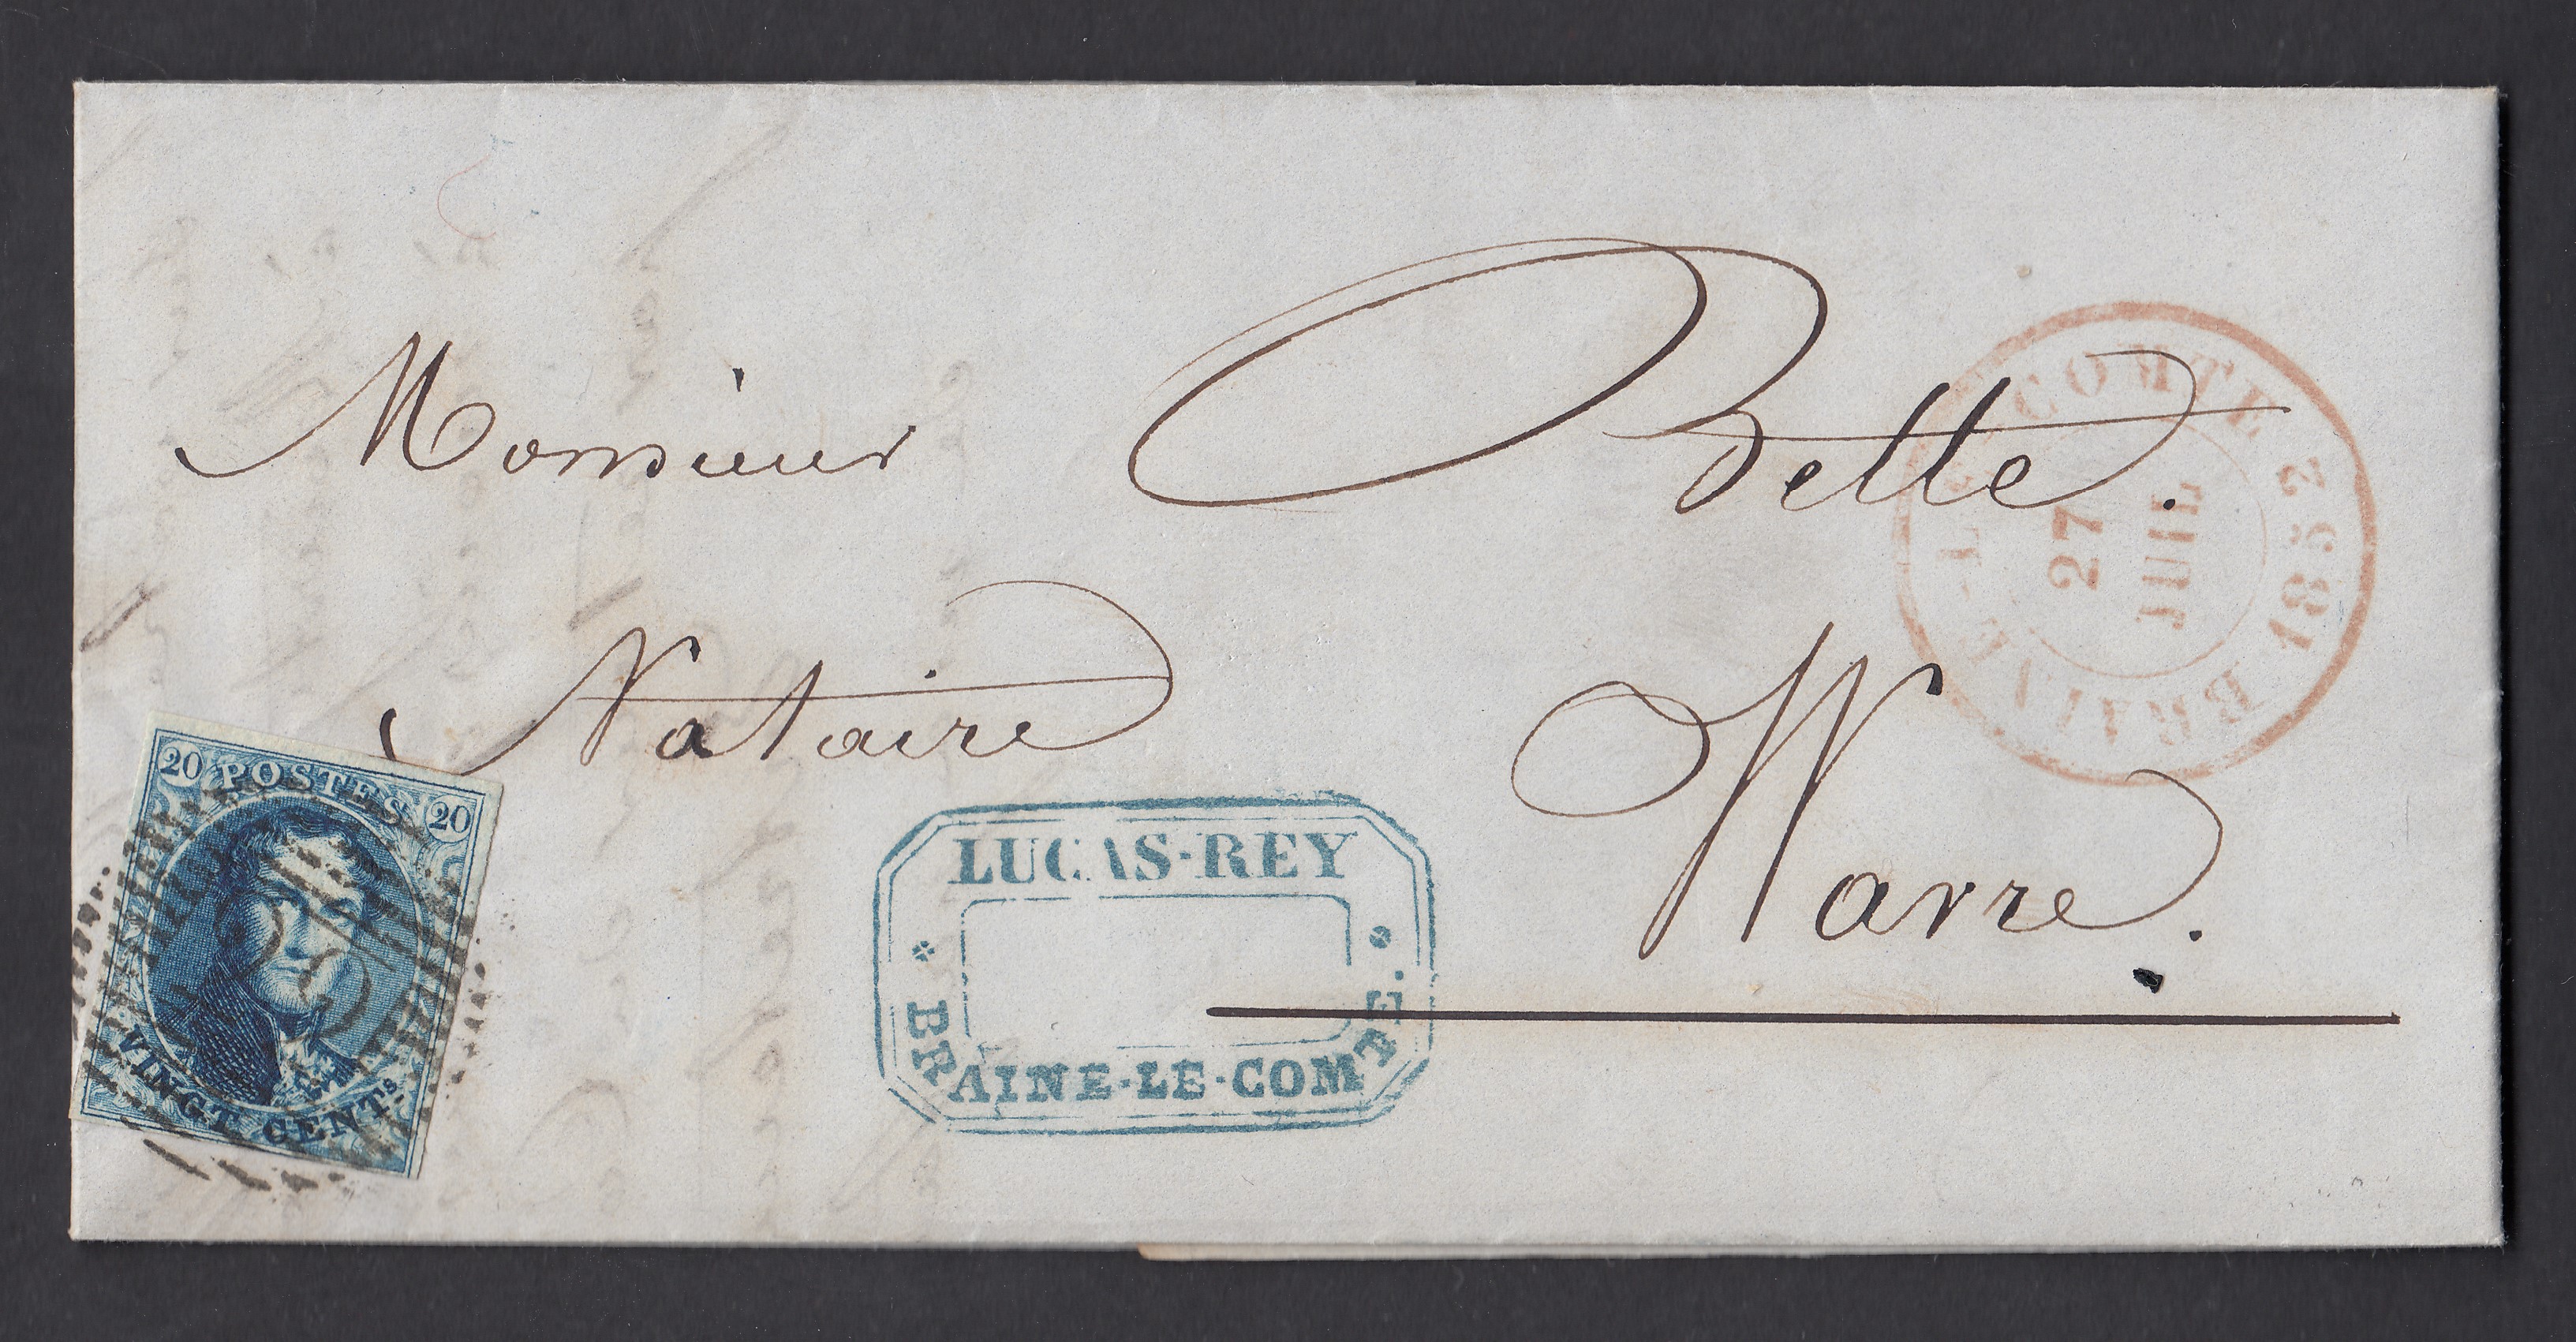 Monsieur Bette.
Notaire
Wavre.
20 POSTES 20
VINGT CENTS.
LUCAS-REY
BRAINE-LE-COMTE.
BRAINE-LE-COMTE
27
JUIL
1852